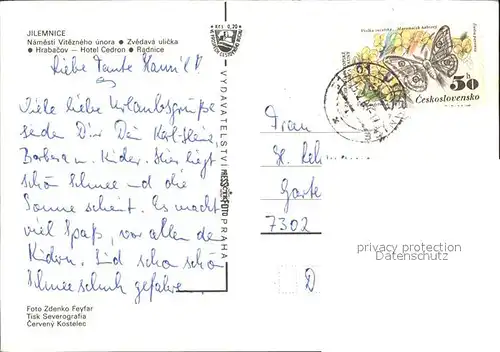 JILEMNICE
Náměstí Vítězného února • Zvědavá ulička
• Hrabačov — Hotel Cedron • Radnice
Liebe Tante
Viele liebe Urlaubsgrüße
Dir Dein Karl-Heinz,
Barbara u. Kinder. Hier liegt
schön Schnee und die
Sonne scheint. Es macht
viel Spaß, vor allem den
Kindern. Sind schon schön
gefahren.
Foto Zdenko Feyfar
Tisk Severografia
Červený Kostelec
Kčs 0,20
VYDAVATELSTVÍ
PRESSFOTO
PRAHA
50 h
Československo
Frau
H.
7302
D
privacy protection
Datenschutz